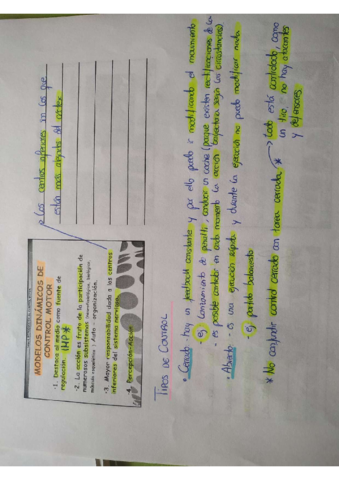 MODELOS DINÁMICOS DE
CONTROL MOTOR
1. Destaca al medio como fuente de
regulación. IMP*
2. La acción es fruto de la participación de
numerosos subsistemas
3. Mayor responsabilidad dada a los centros
inferiores del sistema nervioso.
Percepción-Acción
• Los centros inferiores son los que
están más alejados del córtex
TIPES DE CONTROL
• Cerrado: hay un feedback constante y por ello puedo ir modificando el movimiento
Ej: Lanzamiento de penalti, conducir un coche (porque existen modificaciones de la
- es posible controlar en cada momento la acción trayectoria según las circunstancias)
• Abierto: - es una ejecución rápida y durante la ejecución no puedo modificar nada.
- Ej: partido baloncesto
* No confundir control cerrado con tarea cerrada * → todo está controlado, como
un tiro no hay atacantes
y defensores